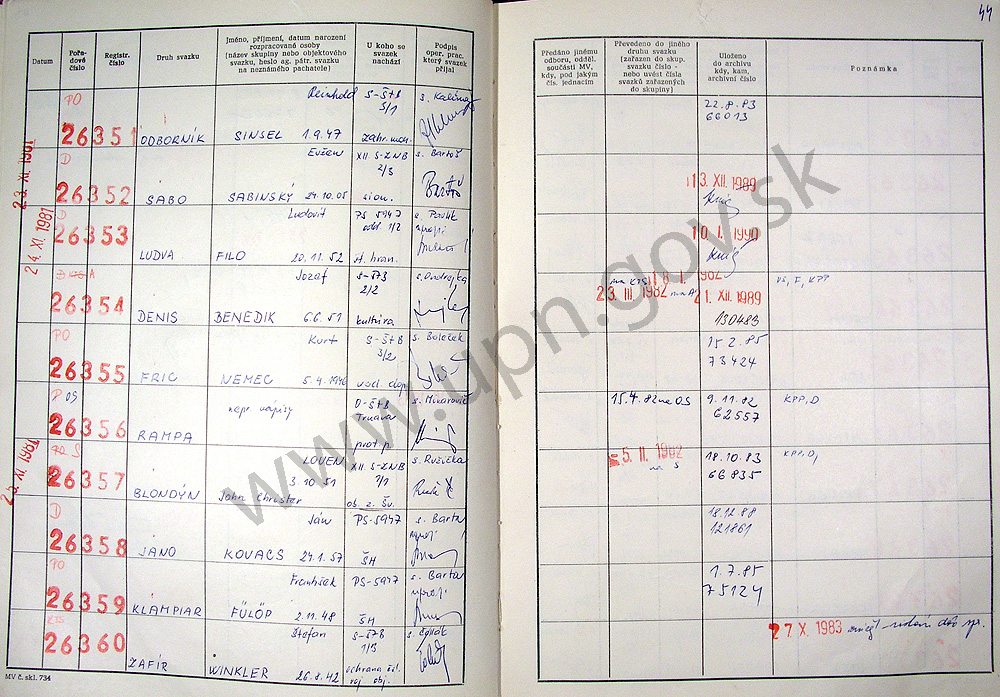 44
Datum
Pořadové číslo
Registr. číslo
Druh svazku
Jméno, příjmení, datum narození rozpracované osoby (název skupiny nebo objektového svazku, heslo ag. pátr. svazku na neznámého pachatele)
U koho se svazek nachází
Podpis oper. prac. který svazek přijal
Předáno jinému odboru, odděl. součásti MV, kdy, pod jakým čís. jednacím
Převedeno do jiného druhu svazku (zařazen do skup. svazku číslo - nebo uvést čísla svazků zařazených do skupiny)
Uloženo do archivu kdy, kam, archivní číslo
Poznámka
PO
Reinhold S-ŠTB s. Kalina
5/1
26351 ODBORNÍK SINSEL 1.9.47
22.8.83
66013
23. XI. 1981
D
Evžen XII S-ZNB s. Bartoš
2/3
26352 SABO SABINSKÝ 24.10.05 sion.
13. XII. 1989
24. XI. 1981
D
Ludovit PS 5947 s. Pavlik
odd. 1/2
26353 LUDVA FILO 20.11.52 st. hran.
10. I. 1990
A
Jozaf S-ŠTB s. Ondrejka
2/2
26354 DENIS BENEDIK 6.6.51 kultúra
na KTS 18. I. 1982
23. III 1982 na A
21. XII. 1989
130483
vš, F, KPP
PO
Kurt S-ŠTB s. Boleček
3/2
26355 FRIC NEMEC 5.4.1946
15.2.85
73424
P OS
nepr. nápisy O-ŠTB s. Minarovič
Trnava
26356 RAMPA prot. p.
15.4.82 na OS
9.11.82
62557
KPP, D
25. XI. 1981
S
LOVEN XII. S-ZNB s. Ružička
3.10.51 7/1
26357 BLONDÝN John Christer ob. z. Šv.
5. II. 1982
na S
18.10.83
66835
KPP, D,
D
Ján PS-5947 s. Barta
26358 JANO KOVACS 24.1.57 ŠH
18.12.88
121861
PO
František PS-5947 s. Barta
26359 KLAMPIAR FÜLÖP 2.11.48 ŠH
1.7.85
75124
KTS
Štefan S-ŠTB
1/3
26360 ZAFÍR WINKLER 26.8.42 ochrana
27 X. 1983
MV č. skl. 734
www.upn.gov.sk